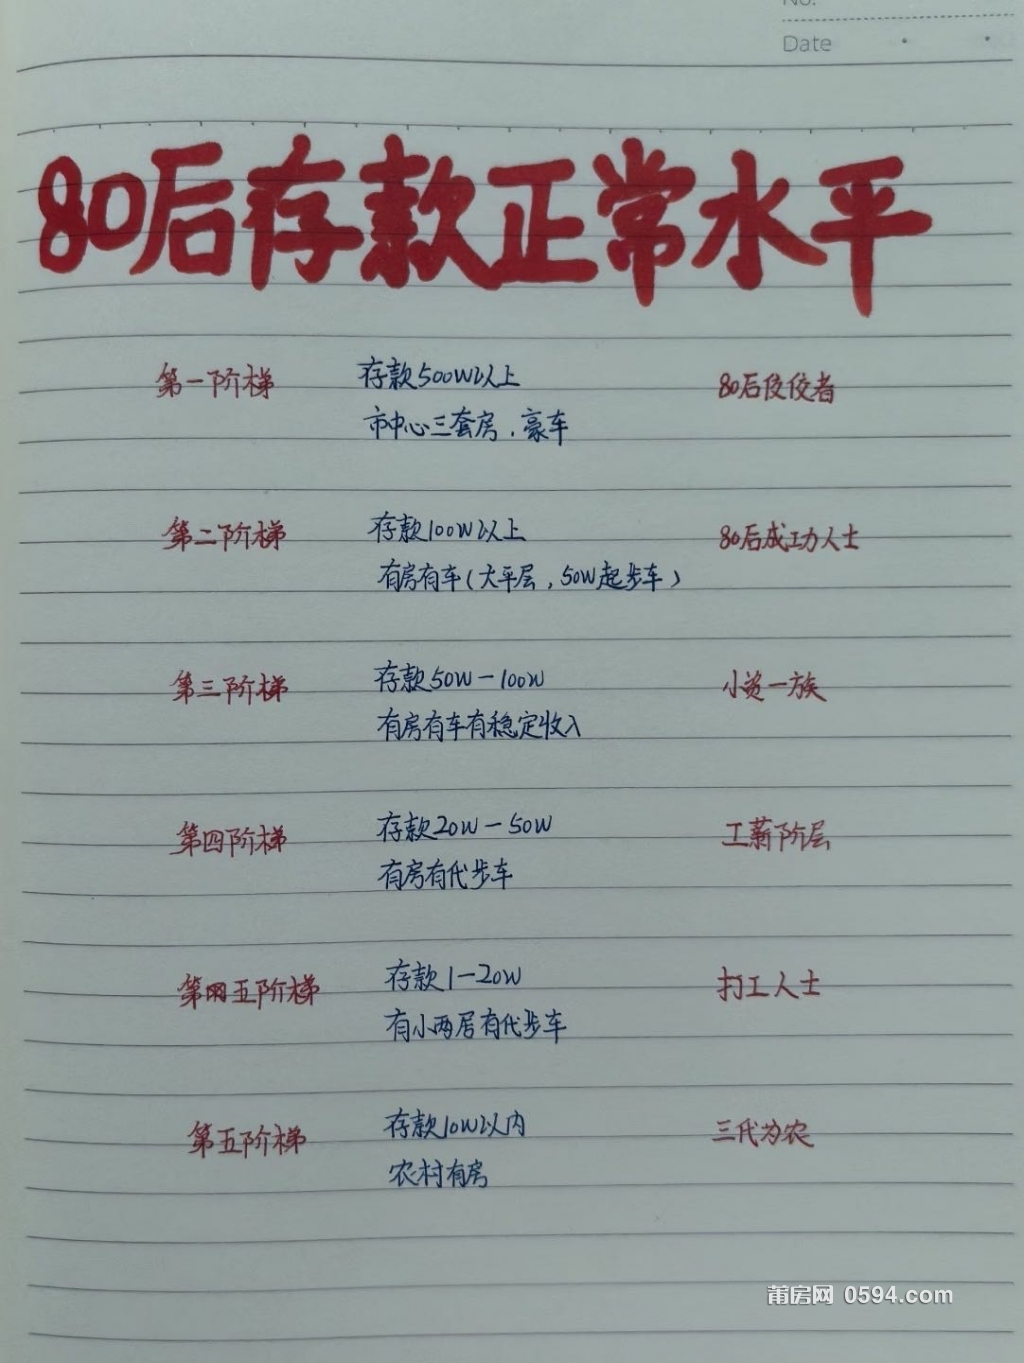 No.
Date
80后存款正常水平
第一阶梯 存款500W以上 80后佼佼者
市中心三套房，豪车
第二阶梯 存款100W以上 80后成功人士
有房有车（大平层，50W起步车）
第三阶梯 存款50W—100W 小资一族
有房有车有稳定收入
第四阶梯 存款20W—50W 工薪阶层
有房有代步车
第五阶梯 存款1—20W 打工人士
有小两居有代步车
第五阶梯 存款10W以内 三代为农
农村有房
莆房网 0594.com